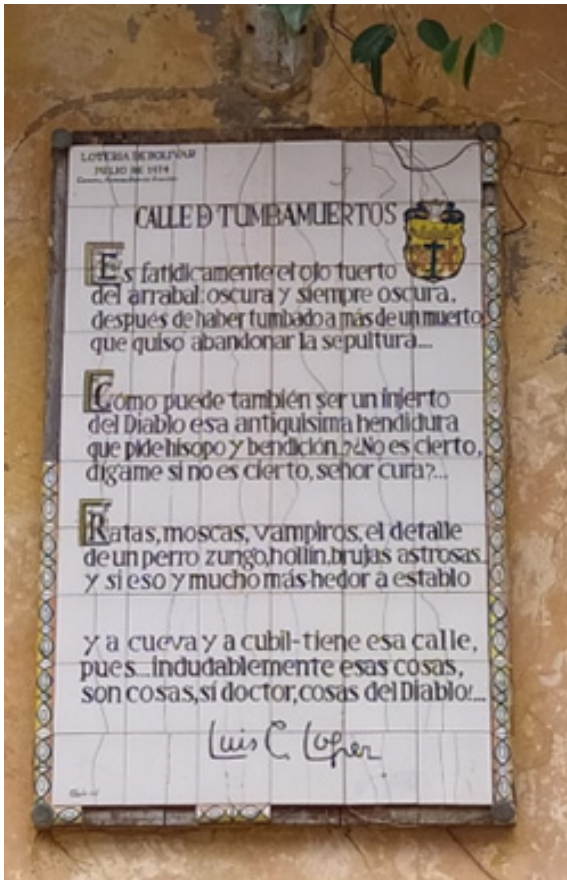 LOTERIA DE BOLIVAR
JULIO DE 1974
CALLE D TUMBAMUERTOS
Es fatidicamente el ojo tuerto
del arrabal: oscura y siempre oscura,
después de haber tumbado a más de un muerto
que quiso abandonar la sepultura...
Como puede también ser un injerto
del Diablo esa antiquisima hendidura
que pide hisopo y bendición. ?¿No es cierto,
dígame si no es cierto, señor cura?...
Ratas, moscas, vampiros, el detalle
de un perro zungo, hollin, brujas astrosas.
y si eso y mucho más-hedor a establo
y a cueva y a cubil-tiene esa calle,
pues...indudablemente esas cosas,
son cosas, sí doctor, cosas del Diablo!...
Luis C. Lopez